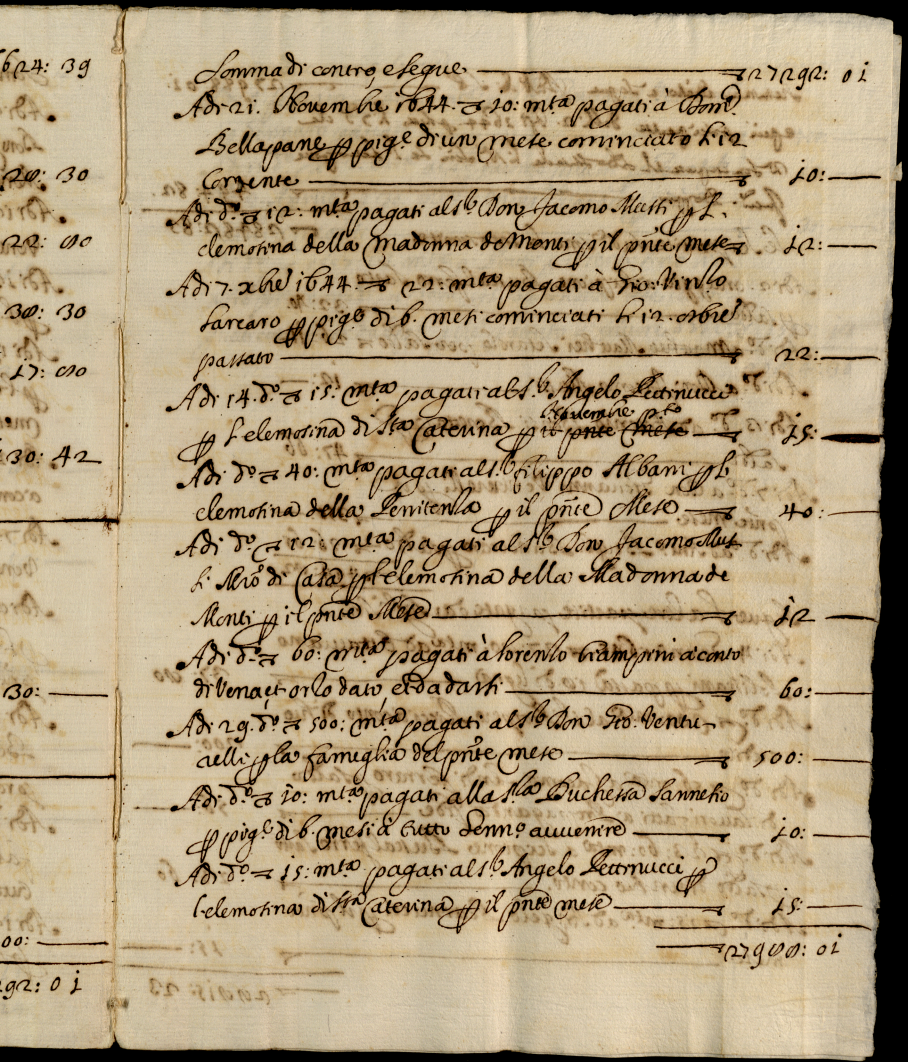 624: 39
28: 30
22: 80
38: 30
17: 80
30: 42
30:
00:
292: 01
Somma di contro, e segue 27292: 01
Adi 21. Novembre 1644 10: mta pagati à Dome
Bellapane p pige di un mese cominciato li 12
Corrente 10:
Adi do 12: mta pagati al sr Don Jacomo Mutti p l'
elemosina della Madonna de Monti p il pnte mese 12:
Adi 7. xbre 1644 22: mta pagati à Gio: 
 p pige di 6. mesi cominciati li 12. 8bre
passato 22:
Adi 14. do 15: mta pagati al sr Angelo Pettinucci
Novembre po
p l'elemosina di Sta Caterina p il pnte mese 15:
Adi do 40: mta pagati al sr Filippo Albani p l'
elemosina della Penitenza p il pnte Mese 40:
Adi do 12: mta pagati al sr Don Jacomo Mut
ti Mro di Casa p l'elemosina della Madonna de
Monti p il pnte Mese 12
Adi do 60: mta pagati à Lorenzo à conto
di Vena et orzo dato, et da darsi 60:
Adi 29. do 500: mta pagati al sr Don Gio: Ventu-
relli p la fameglia del pnte mese 500:
Adi do 10: mta pagati alla Sra Duchessa Sannesio
p pige di 6. mesi à tutto Genno avvenire 10:
Adi do 15: mta pagati al sr Angelo Pettinucci p
l'elemosina di Sta Caterina p il pnte mese 15:
27988: 01